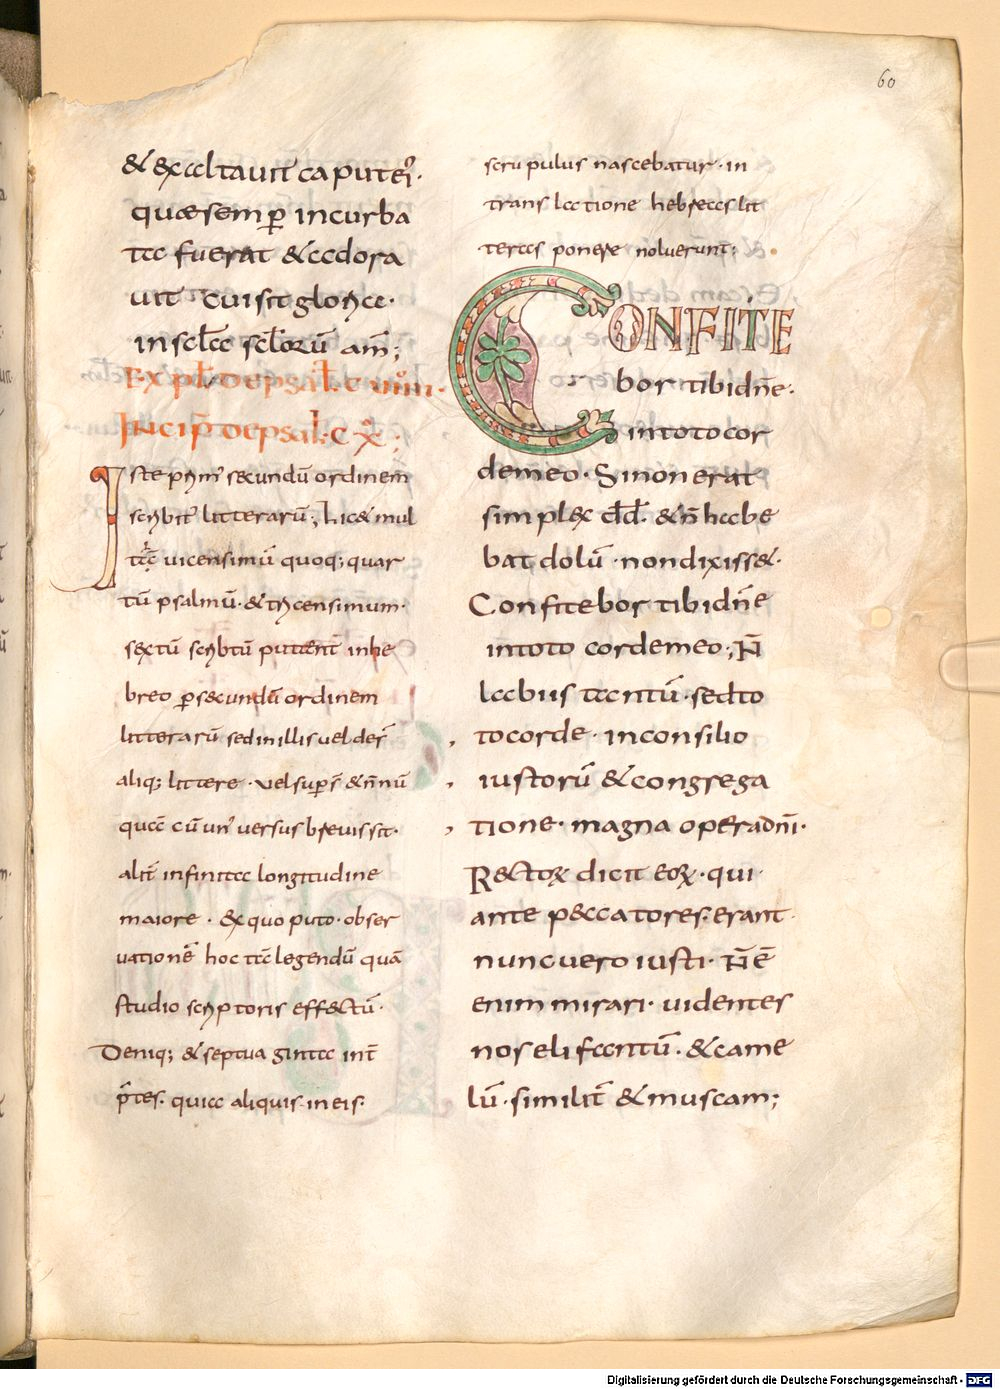 60
& exaltauit caput ei᾽·
quæ semp̄ incurba
ta fuerat & adora
uit cui sit gloria·
in scła scłorū am̄;
Expł de psał· c uiiii·
Incip̄ de psał· c x;
Iste prim᾽ secundū ordinem
scribit᾽ litterarū; Lic& mul
ti uicensimū quoq; quar
tū psalmū· & tricensimum·
sextū scribtū putent in he
breo p̄ secundū ordinem
litterarū sed in illis uel der̄
aliq; littere· uel sup̄s̄ & n̄ nū
quā cū un᾽ uersus breuis sit·
alt̄ infinita longitudine
maiore· ex quo puto· obser
uationē hoc ī legendū quā
studio scriptoris effectū·
Deniq; & septuaginta int̄
p̄tes· quia aliquis in eis·
scrupulus nascebatur· in
translatione hebreas lit
teras ponere noluerunt;
CONFITE
bor tibi dn̄e·
in toto cor
de meo· Si non erat
simplex dd̄· & n̄ habe
bat dolū· non dixiss&·
Confitebor tibi dn̄e
in toto corde meo; N̄
labiis tantū· sed to
to corde· in consilio
iustorū & congrega
tione· magna opera dn̄i·
Rector dicit eoꝝ· qui·
ante peccatores· erant·
nunc uero iusti· N̄ ē
enim mirari· uidentes
nos elifantū· & came
lū· similit̄ & muscam;
Digitalisierung gefördert durch die Deutsche Forschungsgemeinschaft - DFG